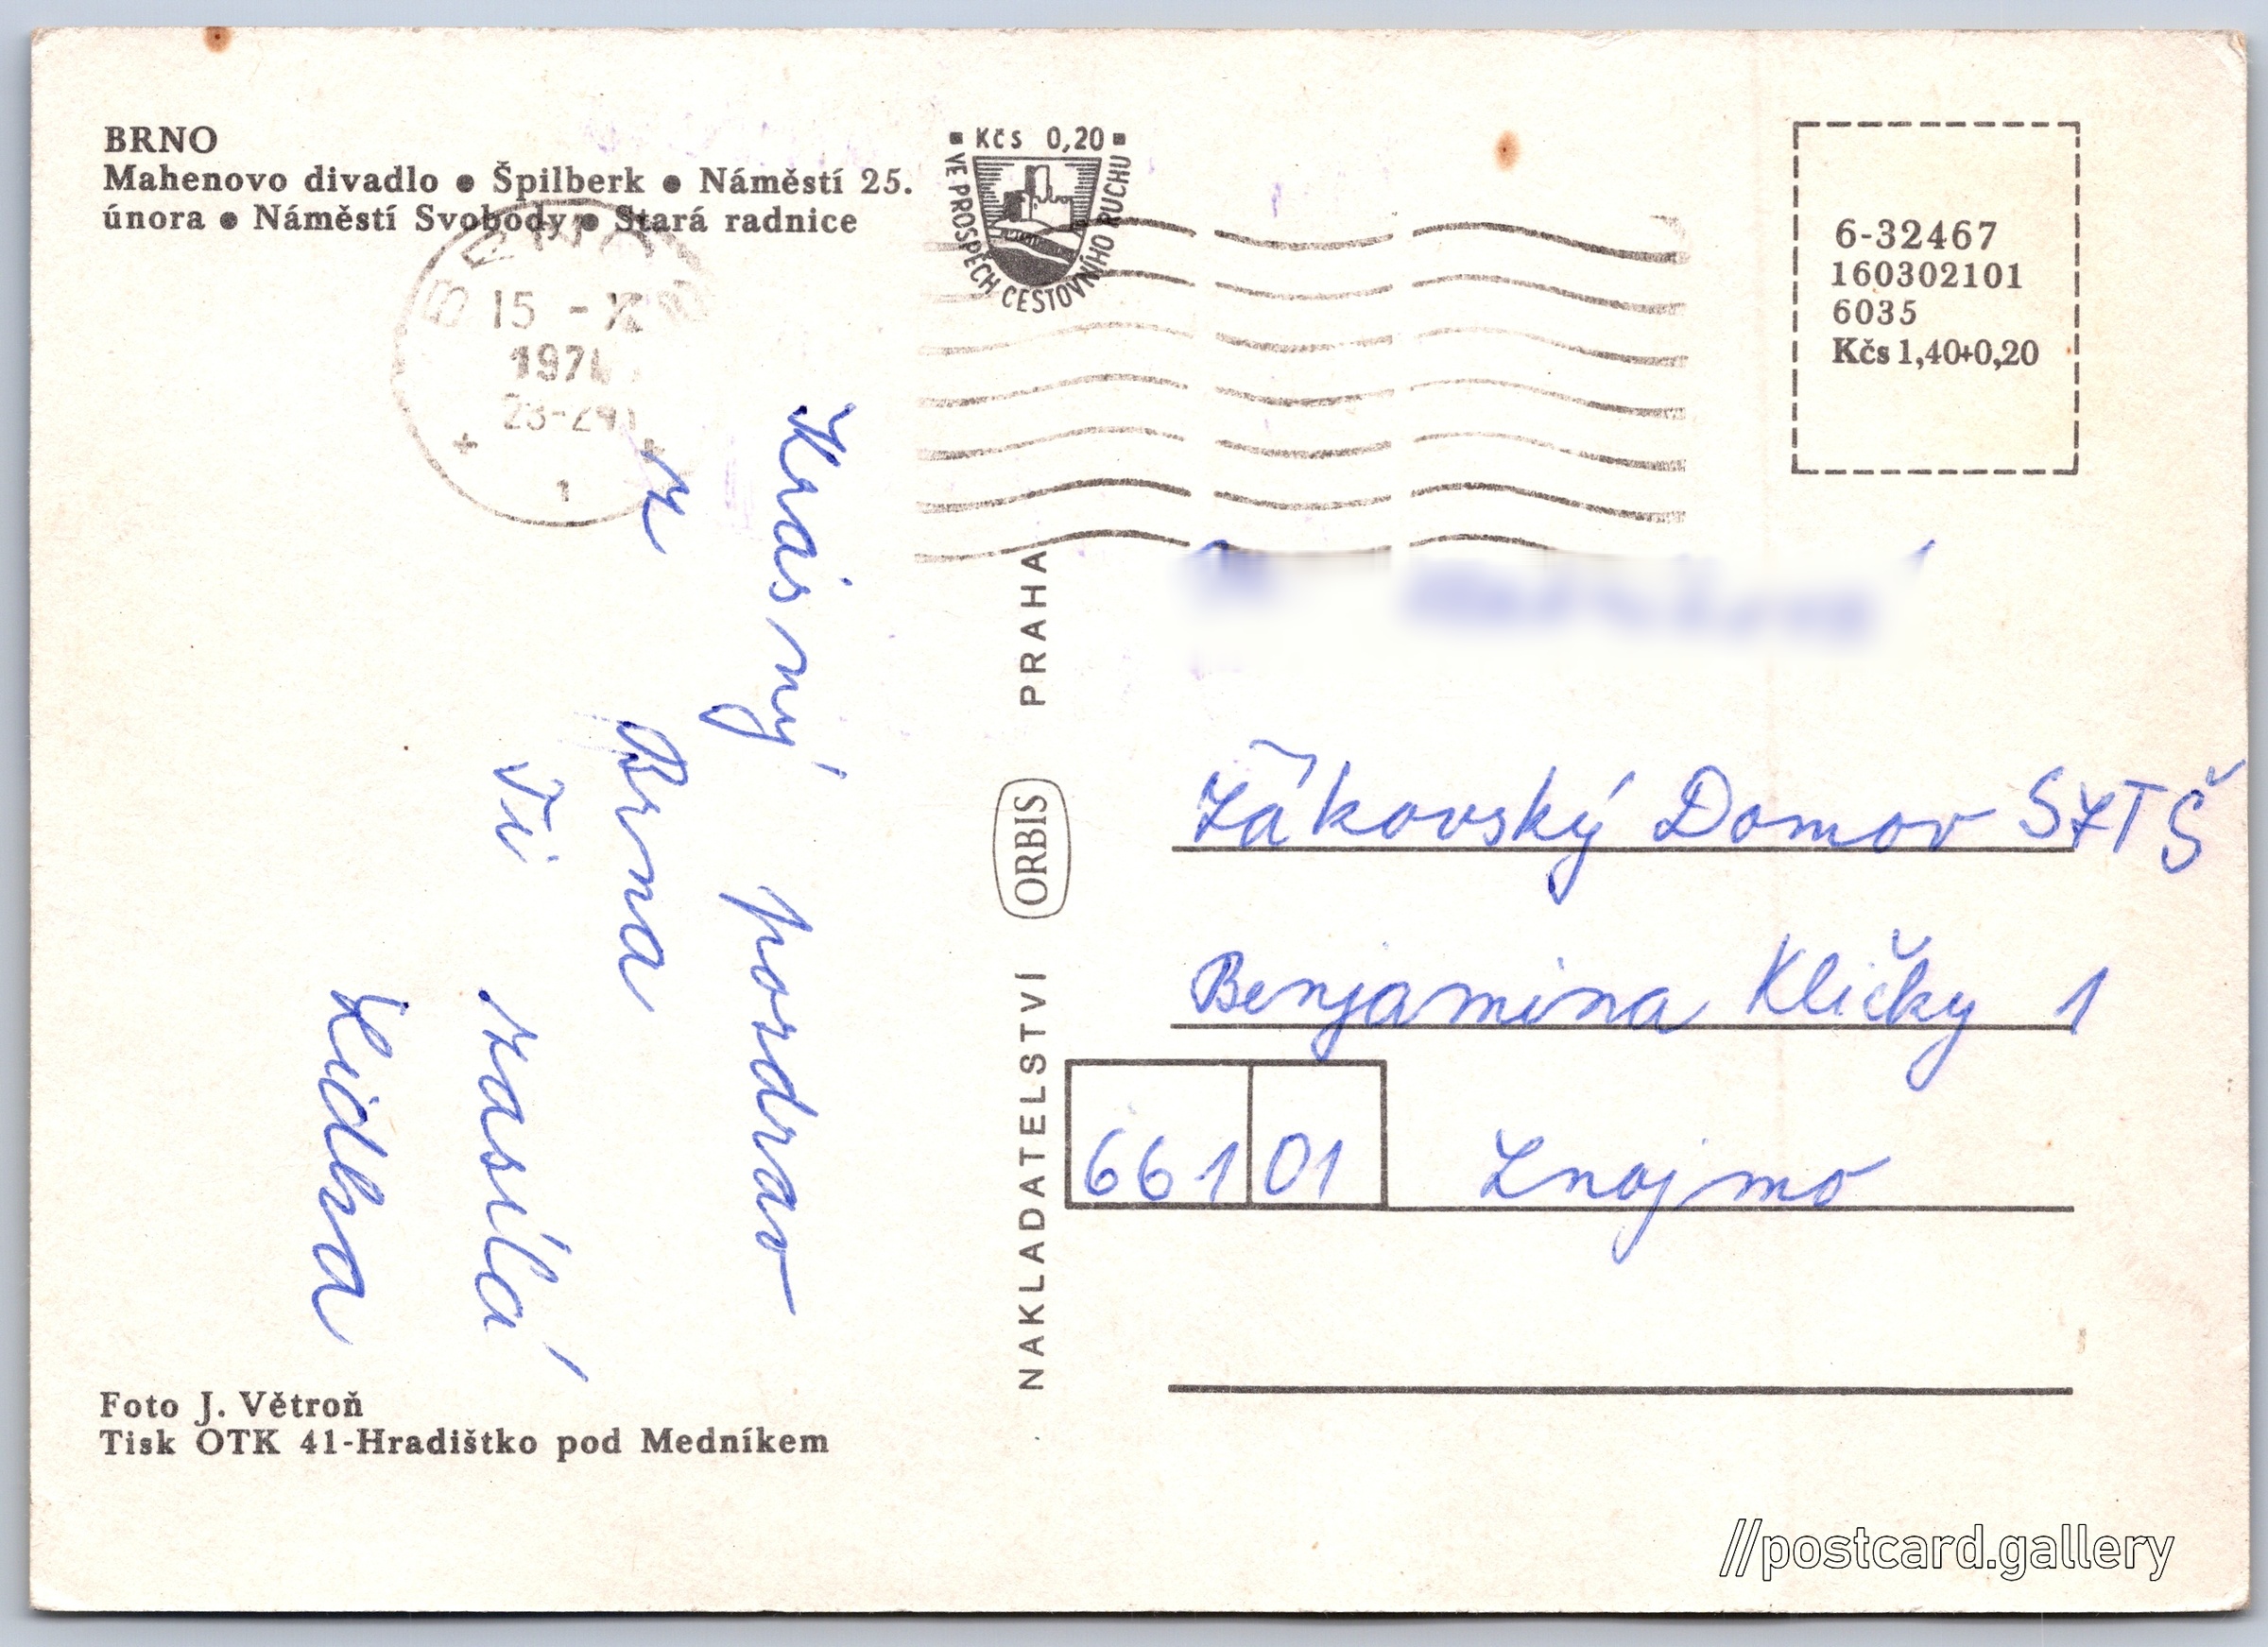 BRNO
Mahenovo divadlo ● Špilberk ● Náměstí 25.
února ● Náměstí Svobody ● Stará radnice
▪ Kčs 0,20 ▪
VE PROSPĚCH CESTOVNÍHO RUCHU
BRNO
15 -
197
1
6-32467
160302101
6035
Kčs 1,40+0,20
Krásný pozdrav
z Brna
Ti zasílá
Lidka
NAKLADATELSTVÍ ORBIS PRAHA
Žákovský Domov SZTŠ
Benjamina Kličky 1
661 01 Znojmo
Foto J. Větroň
Tisk OTK 41-Hradištko pod Medníkem
//postcard.gallery